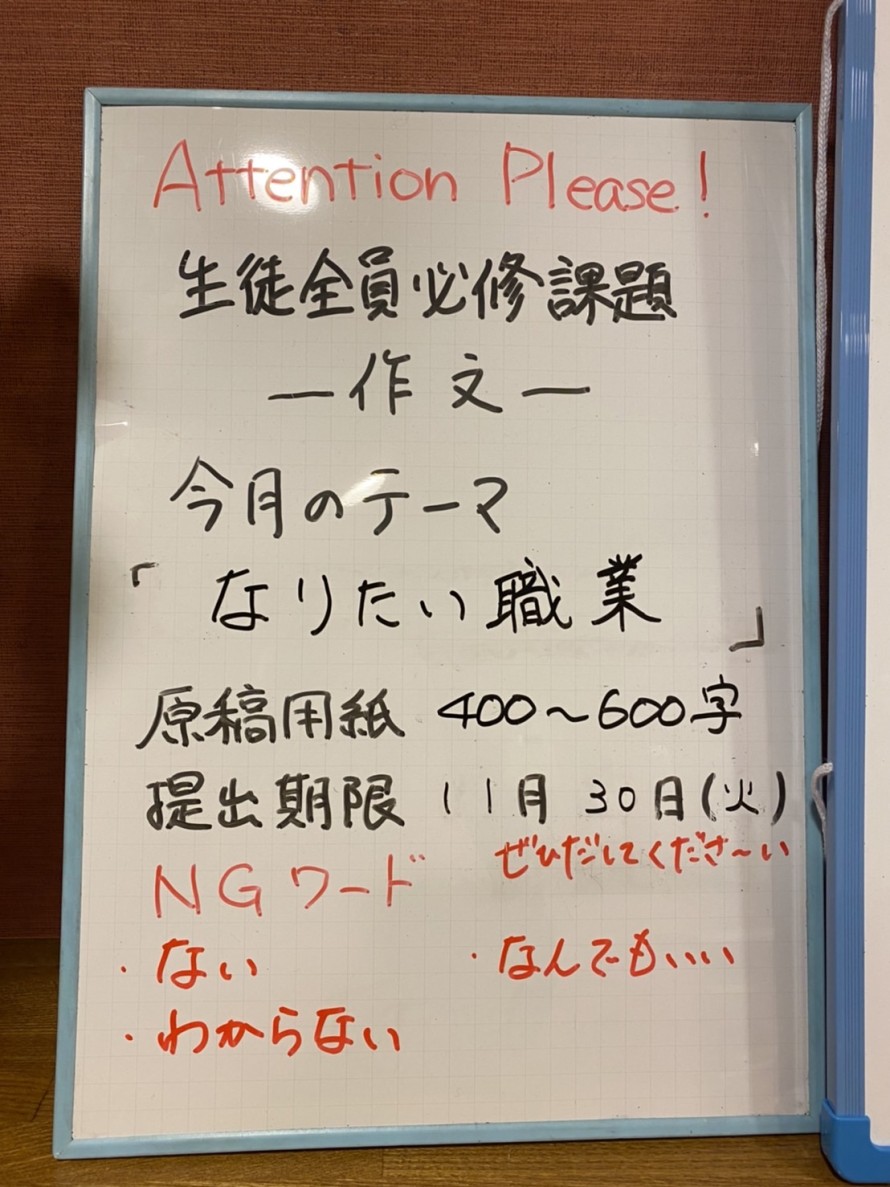 Attention Please!
生徒全員必修課題
ー作文ー
今月のテーマ
「なりたい職業」
原稿用紙 400〜600字
提出期限 11月30日(火)
ぜひだしてくださ〜い
NGワード
・ない ・なんでもいい
・わからない